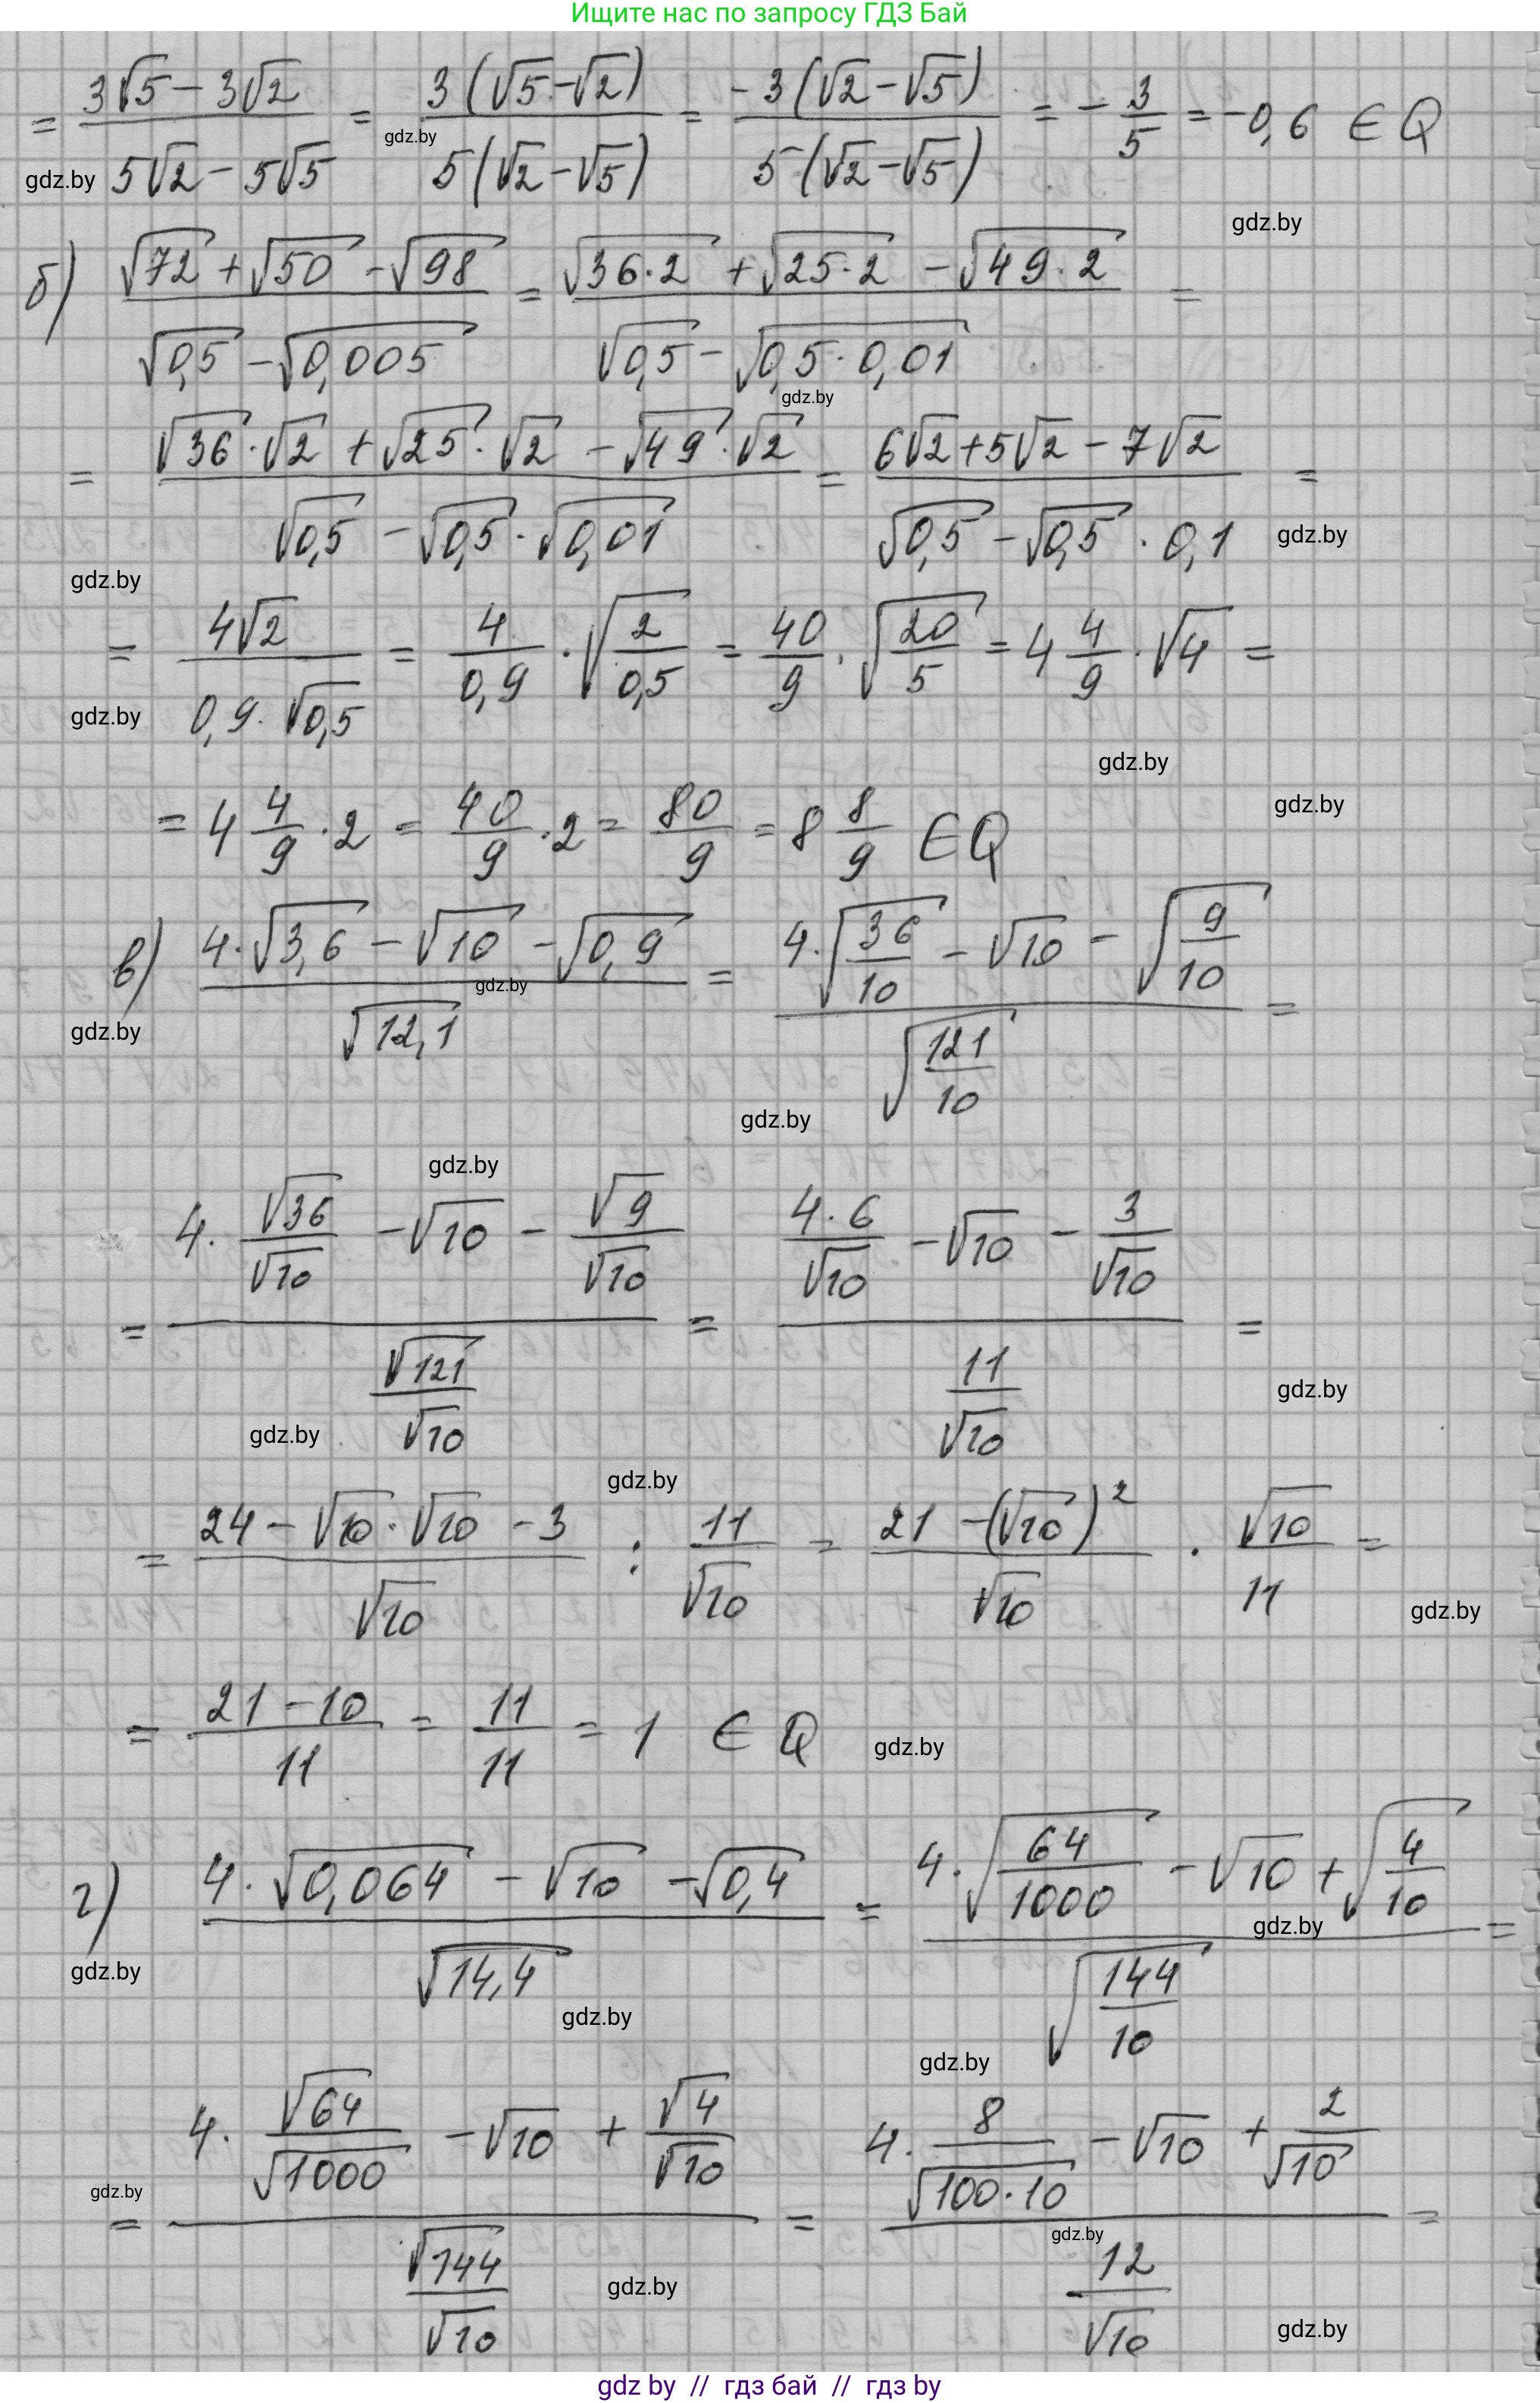 Ищите нас по запросу ГДЗ Бай
= (3√5 − 3√2)/(5√2 − 5√5) = 3(√5−√2)/5(√2−√5) = −3(√2−√5)/5(√2−√5) = −3/5 = −0,6 ∈ Q
gdz.by
gdz.by
gdz.by
б) (√72 + √50 − √98)/(√0,5 − √0,005) = (√36·2 + √25·2 − √49·2)/(√0,5 − √0,5·0,01) =
gdz.by
= (√36·√2 + √25·√2 − √49·√2)/(√0,5 − √0,5·√0,01) = (6√2+5√2−7√2)/(√0,5 − √0,5·0,1) =
gdz.by
gdz.by
= 4√2/(0,9·√0,5) = 4/0,9·√(2/0,5) = 40/9·√(20/5) = 4 4/9·√4 =
gdz.by
gdz.by
gdz.by
= 4 4/9·2 = 40/9·2 = 80/9 = 8 8/9 ∈ Q
в) (4·√3,6 − √10 − √0,9)/√12,1 = (4·√(36/10) − √10 − √(9/10))/√(121/10) =
gdz.by
gdz.by
gdz.by
gdz.by
= (4·√36/√10 − √10 − √9/√10)/(√121/√10) = (4·6/√10 − √10 − 3/√10)/(11/√10) =
gdz.by
gdz.by
gdz.by
= (24 − √10·√10 − 3)/√10 : 11/√10 = (21 − (√10)²)/√10 · √10/11 =
gdz.by
= (21−10)/11 = 11/11 = 1 ∈ Q
gdz.by
г) (4·√0,064 − √10 − √0,4)/√14,4 = (4·√(64/1000) − √10 + √(4/10))/√(144/10) =
gdz.by
gdz.by
gdz.by
gdz.by
= (4·√64/√1000 − √10 + √4/√10)/(√144/√10) = (4·8/√100·10 − √10 + 2/√10)/(12/√10) =
gdz.by
gdz.by
gdz.by
gdz.by
gdz by // гдз бай // gdz by